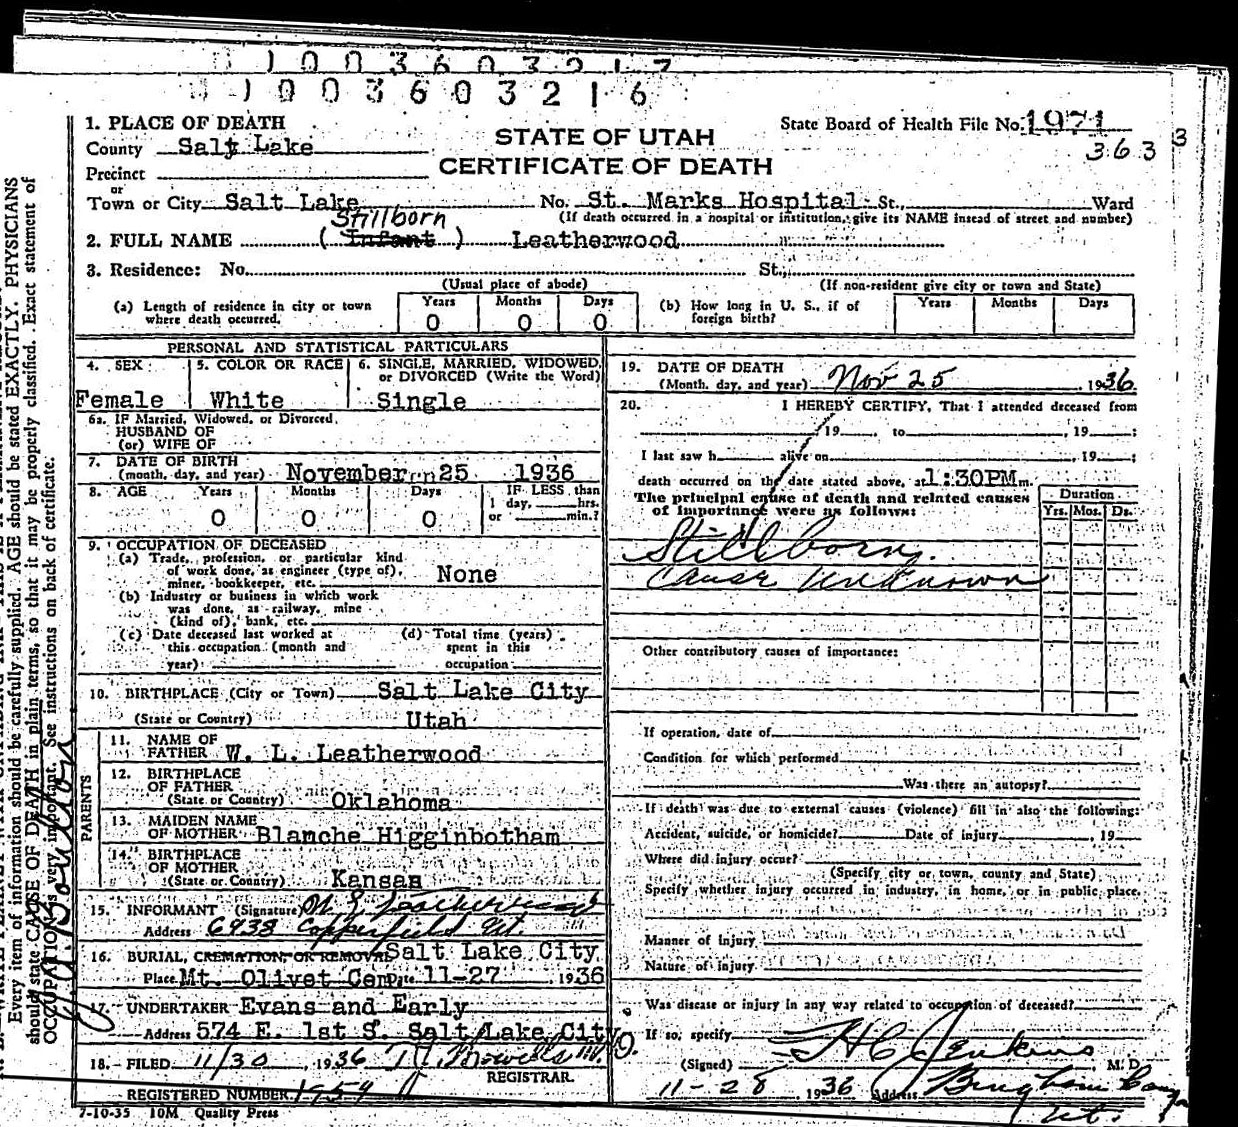 1003603217
1003603216
1. PLACE OF DEATH
STATE OF UTAH
CERTIFICATE OF DEATH
State Board of Health File No. 1971
363 3
County Salt Lake
Precinct
or
Town or City Salt Lake No. St. Marks Hospital St., Ward
(If death occurred in a hospital or institution, give its NAME insead of street and number)
Stillborn
2. FULL NAME (Infant) Leatherwood
3. Residence: No. St.,
(Usual place of abode) (If non-resident give city or town and State)
(a) Length of residence in city or town where death occurred. Years 0 Months 0 Days 0
(b) How long in U. S., if of foreign birth? Years Months Days
PERSONAL AND STATISTICAL PARTICULARS
4. SEX Female
5. COLOR OR RACE White
6. SINGLE, MARRIED, WIDOWED, or DIVORCED (Write the Word) Single
6a. IF Married, Widowed, or Divorced,
HUSBAND OF
(or) WIFE OF
7. DATE OF BIRTH
(month, day, and year) November 25 1936
8. AGE Years 0 Months 0 Days 0 IF LESS than 1 day, hrs. or min.?
9. OCCUPATION OF DECEASED
(a) Trade, profession, or particular kind
of work done, as engineer (type of),
miner, bookkeeper, etc. None
(b) Industry or business in which work
was done, as railway, mine
(kind of), bank, etc.
(c) Date deceased last worked at
this occupation (month and
year)
(d) Total time (years)
spent in this
occupation
10. BIRTHPLACE (City or Town) Salt Lake City
(State or Country) Utah
PARENTS
11. NAME OF
FATHER W. L. Leatherwood
12. BIRTHPLACE
OF FATHER
(State or Country) Oklahoma
13. MAIDEN NAME
OF MOTHER Blanche Higginbotham
14. BIRTHPLACE
OF MOTHER
(State or Country) Kansas
15. INFORMANT (Signature) W L Leatherwood
Address 6938 Copperfield Ut.
16. BURIAL, CREMATION OR REMOVAL Salt Lake City
Place Mt. Olivet Cem Date 11-27 1936
17. UNDERTAKER Evans and Early
Address 574 E. 1st S. Salt Lake City
18. FILED 11/30, 1936 M.D.
REGISTRAR.
REGISTERED NUMBER 1954
7-10-35 10M Quality Press
19. DATE OF DEATH
(Month, day, and year) Nov 25, 1936
20. I HEREBY CERTIFY, That I attended deceased from
, 19 , to , 19 ;
I last saw h alive on , 19 ;
death occurred on the date stated above, at 1:30PM m.
The principal cause of death and related causes
of importance were as follows:
Duration
Yrs. Mos. Ds.
Stillborn.
Cause Unknown
Other contributory causes of importance:
If operation, date of
Condition for which performed
Was there an autopsy?
If death was due to external causes (violence) fill in also the following:
Accident, suicide, or homicide? Date of injury , 19
Where did injury occur?
(Specify city or town, county and State)
Specify whether injury occurred in industry, in home, or in public place.
Manner of injury
Nature of injury
Was disease or injury in any way related to occupation of deceased?
If so, specify
(Signed) H C Jenkins, M. D.
11-28 1936 Address Bingham Canyon
Ut.
Every item of information should be carefully supplied. AGE should be stated EXACTLY. PHYSICIANS
should state CAUSE OF DEATH in plain terms, so that it may be properly classified. Exact statement of
OCCUPATION is very important. See instructions on back of certificate.